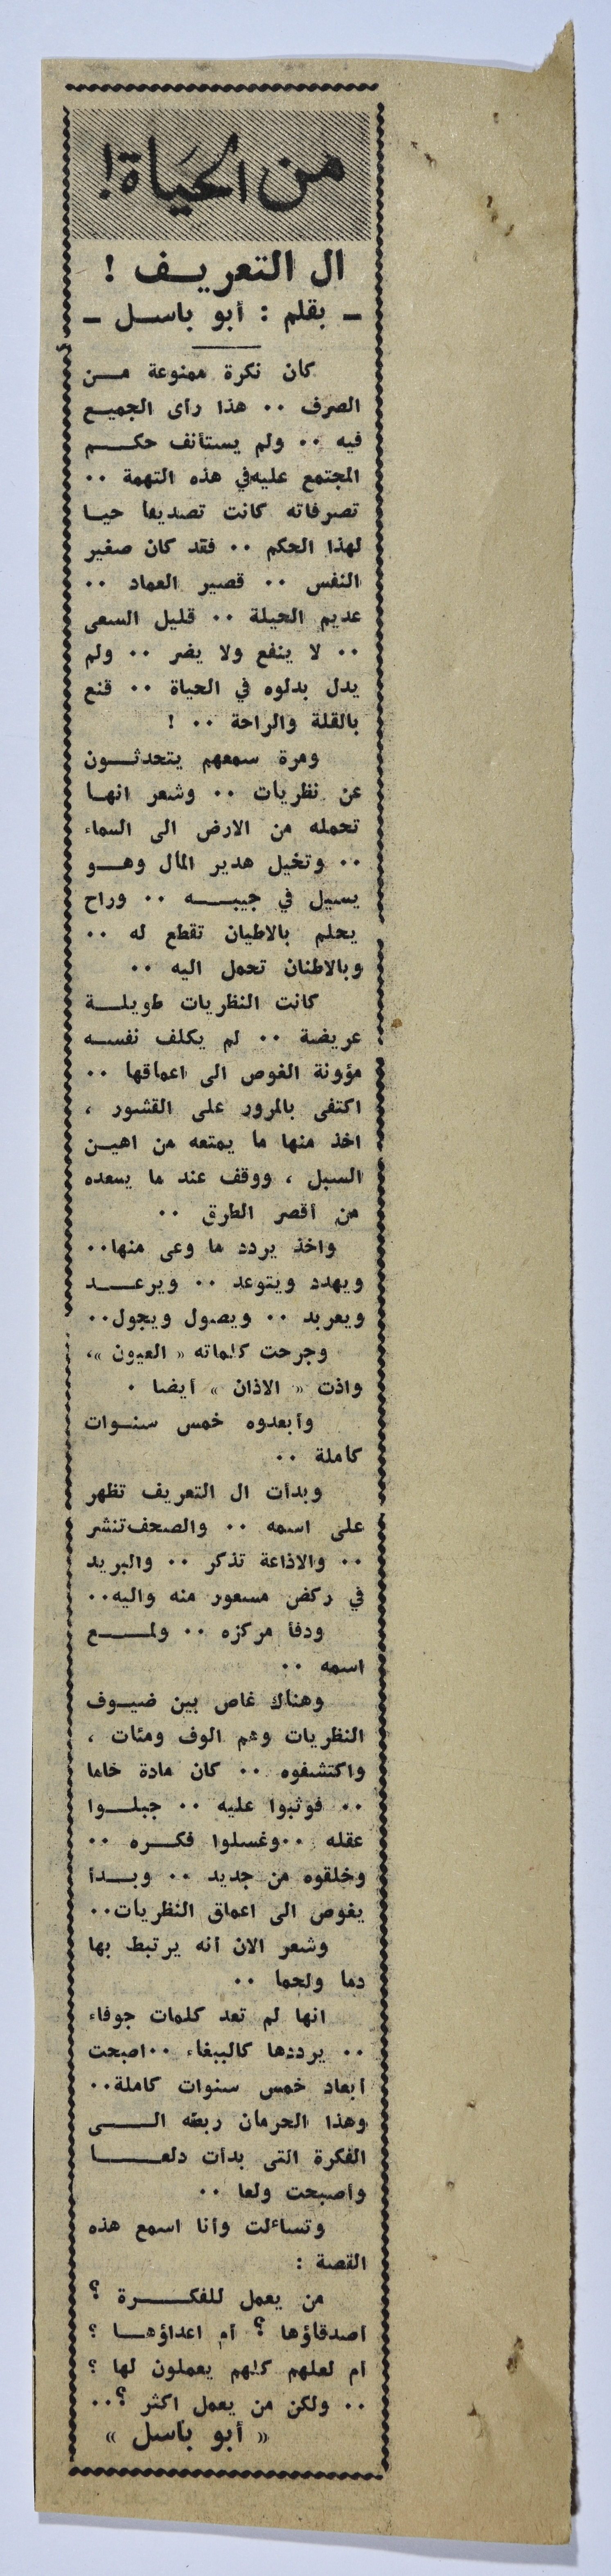 من الحياة!
ال التعريف !
ـ بقلم : أبو باسل ـ
كان نكرة ممنوعة من
الصرف .. هذا رأى الجميع
فيه .. ولم يستأنف حكم
المجتمع عليه في هذه التهمة ..
تصرفاته كانت تصديقا حيا
لهذا الحكم .. فقد كان صغير
النفس .. قصير العماد ..
عديم الحيلة .. قليل السعى
.. لا ينفع ولا يضر .. ولم
يدل بدلوه في الحياة .. قنع
بالقلة والراحة .. !
ومرة سمعهم يتحدثون
عن نظريات .. وشعر انها
تحمله من الارض الى السماء
.. وتخيل هدير المال وهو
يسيل في جيبه .. وراح
يحلم بالاطيان تقطع له ..
وبالاطنان تحمل اليه ..
كانت النظريات طويلة
عريضة .. لم يكلف نفسه
مؤونة الغوص الى اعماقها ..
اكتفى بالمرور على القشور ،
اخذ منها ما يمتعه من اهين
السبل ، ووقف عند ما يسعده
من أقصر الطرق ..
واخذ يردد ما وعى منها..
ويهدد ويتوعد .. ويرعد
ويعربد .. ويصول ويجول..
وجرحت كلماته « العيون »،
واذت « الاذان » أيضا .
وأبعدوه خمس سنوات
كاملة ..
وبدأت ال التعريف تظهر
على اسمه .. والصحف تنشر
.. والاذاعة تذكر .. والبريد
في ركض مسعور منه واليه..
ودفأ مركزه .. ولمع
اسمه ..
وهناك غاص بين ضيوف
النظريات وهم الوف ومئات ،
واكتشفوه .. كان مادة خاما
.. فوثبوا عليه .. جبلوا
عقله ..وغسلوا فكره ..
وخلقوه من جديد .. وبدأ
يغوص الى اعماق النظريات..
وشعر الان أنه يرتبط بها
دما ولحما ..
انها لم تعد كلمات جوفاء
.. يرددها كالببغاء ..اصبحت
ابعاد خمس سنوات كاملة..
وهذا الحرمان ربطه الى
الفكرة التي بدأت دلعا
وأصبحت ولعا ..
وتساءلت وأنا اسمع هذه
القصة :
من يعمل للفكرة ؟
أصدقاؤها ؟ أم اعداؤها ؟
أم لعلهم كلهم يعملون لها ؟
.. ولكن من يعمل اكثر ؟..
« أبو باسل »